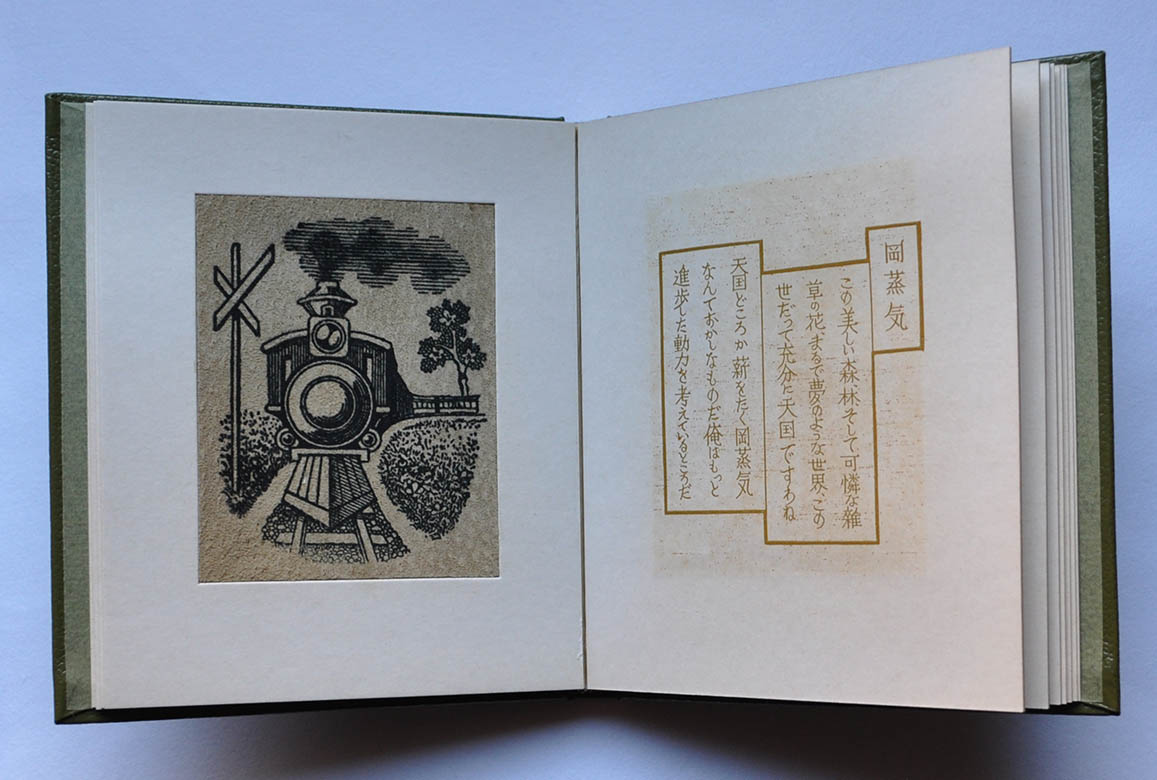 岡蒸気
この美しい森、林そして可憐な雑
草の花、まるで夢のような世界、この
世だって充分に天国ですわね
天国どころか薪をたく岡蒸気
なんておかしなものだ俺はもっと
進歩した動力を考えているところだ